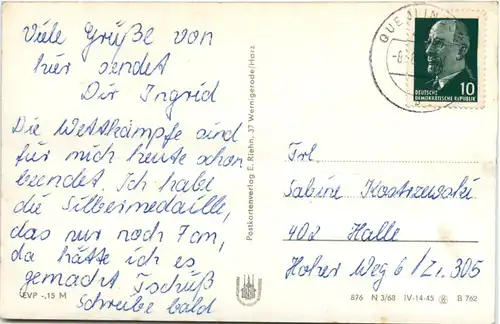 Viele Grüße von
hier sendet
Dir Ingrid
Die Wettkämpfe sind
für mich heute schon
beendet. Ich habe
die Silbermedaille,
das nur noch 7 cm,
da hätte ich es
gemacht Tschüß
Schreibe bald
EVP -,15 M
Postkartenverlag E. Riehn, 37 Wernigerode/Harz
QUEDLIN
-8.
10
DEUTSCHE
DEMOKRATISCHE REPUBLIK
Frl.
Sabine Kostrzewski
402 Halle
Hoher Weg 6 / Zi. 305
876 N 3/68 IV-14-45 B 762